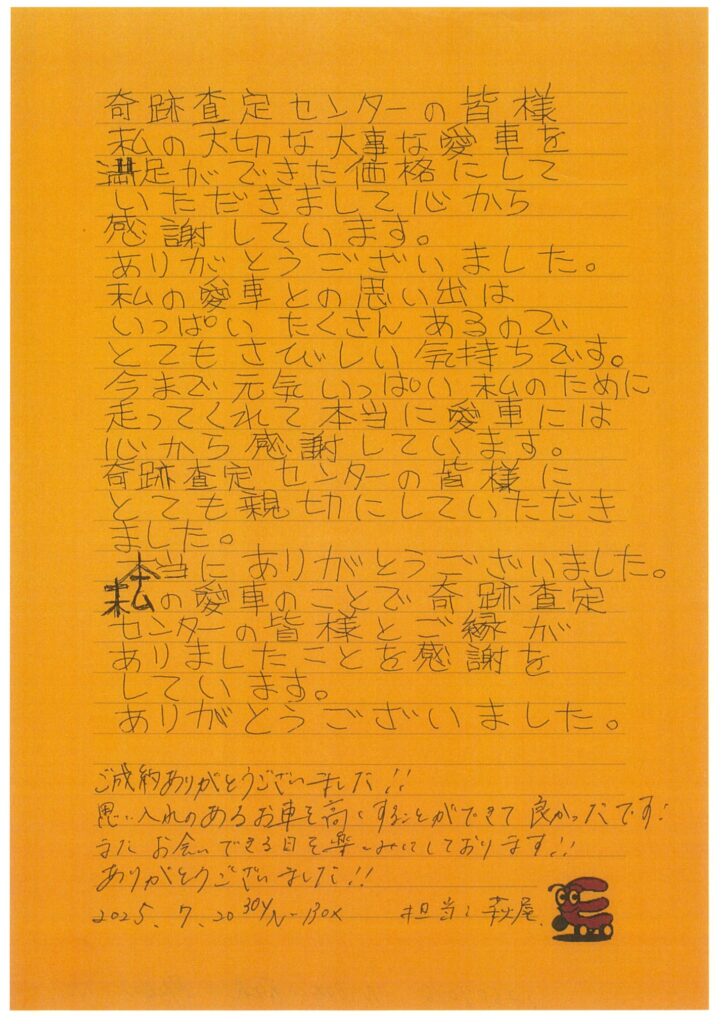 奇跡査定センターの皆様
私の大切な大事な愛車を
満足ができた価格にして
いただきまして心から
感謝しています。
ありがとうございました。
私の愛車との思い出は
いっぱいたくさんあるので
とてもさびしい気持ちです。
今まで元気いっぱい私のために
走ってくれて本当に愛車には
心から感謝しています。
奇跡査定センターの皆様に
とても親切にしていただき
ました。
本当にありがとうございました。
私の愛車のことで奇跡査定
センターの皆様とご縁が
ありましたことを感謝を
しています。
ありがとうございました。
ご成約ありがとうございました!!
思い入れのあるお車を高くすることができて良かったです!
またお会いできる日を楽しみにしております!!
ありがとうございました!!
2025.7.20 30y N-BOX 担当:萩屋